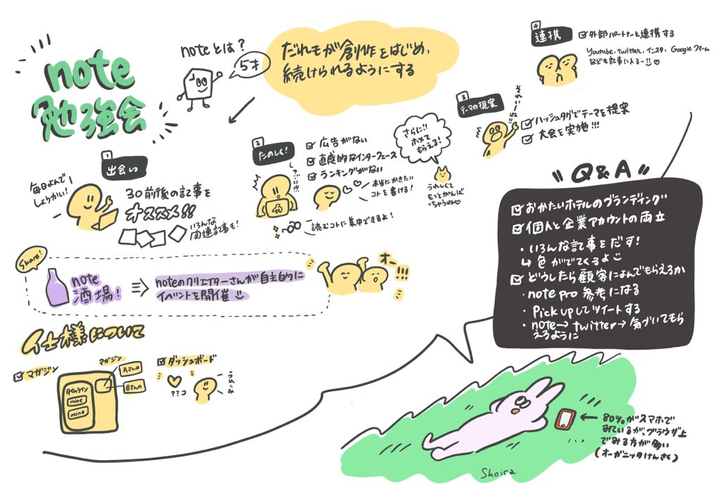 note
勉強会
noteとは?
5才
だれもが創作をはじめ、
続けられるようにする
1
出会い
毎日よんで
しょうかい!
30前後の記事を
オススメ!!
いろんな
関連記事も!
2
たのしく!
広告がない
直感的なインターフェース
ランキングがない
本当にかきたい
コトを書ける!
読むコトに集中できるよ!
さらに!!
ホメて
もらえる!
うれしくて
もっとがんば
っちゃうね♡
3
テーマの提案
ハッシュタグでテーマを提案
大会を実施!!!
4
連携
外部パートナーと連携する
Youtube, twitter, インスタ, Google フォーム
なども記事に入るー!!♡
Share!
note
酒場!
noteのクリエイターさんが自主的に
イベントを開催
オー!!!
"Q&A"
おかたいホテルのブランディング
個人と企業アカウントの両立
・いろんな記事をだす!
↳色がでてくるよ
どうしたら顧客によんでもらえるか
・note pro 参考になる
・Pick upしてツイートする
・note→twitter→気づいてもら
えるように
仕様について
マガジン
マガジン
タイムライン
mine
mine
Aさんの
Bさんの
ダッシュボード
80%がスマホで
みているが、ブラウザ上
でみる方が多い
(オーガニックけんさく)
Shoira